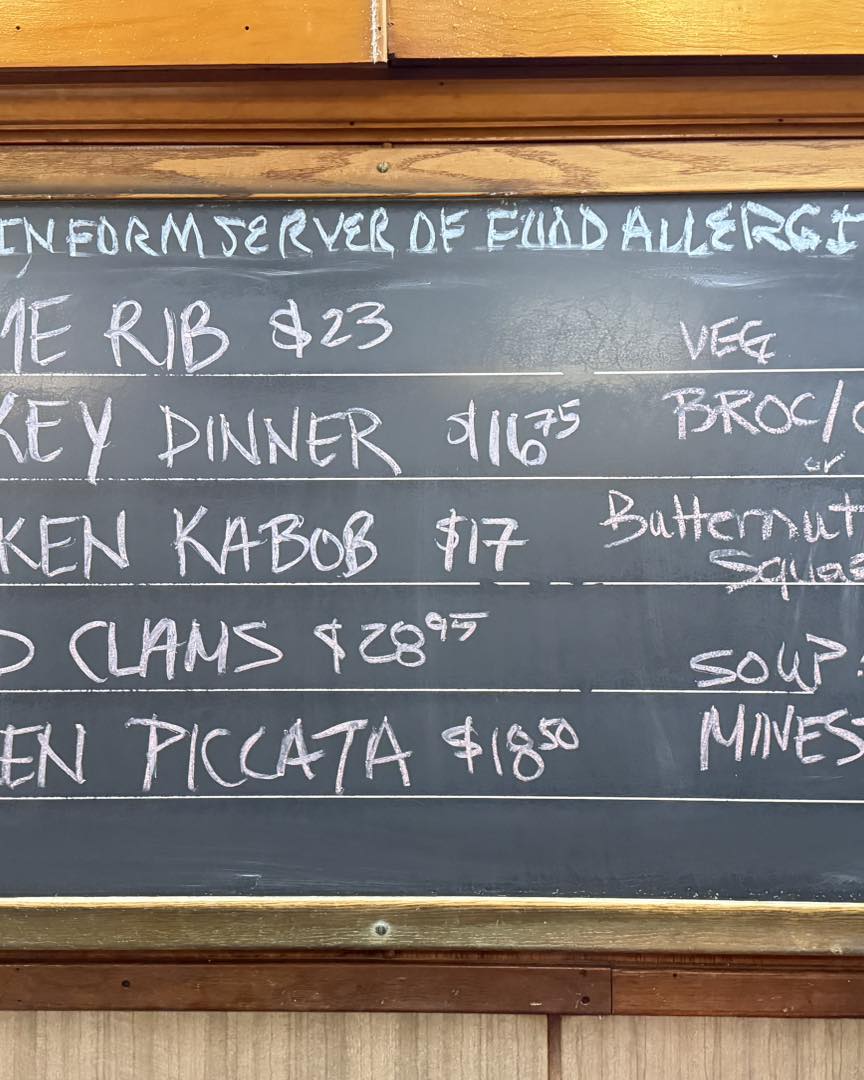 INFORM SERVER OF FOOD ALLERGI
ME RIB $23
KEY DINNER $16.75
KEN KABOB $17
D CLAMS $28.95
EN PICCATA $18.50
VEG
BROC/C
or
Butternut
Squas
SOUP:
MINES